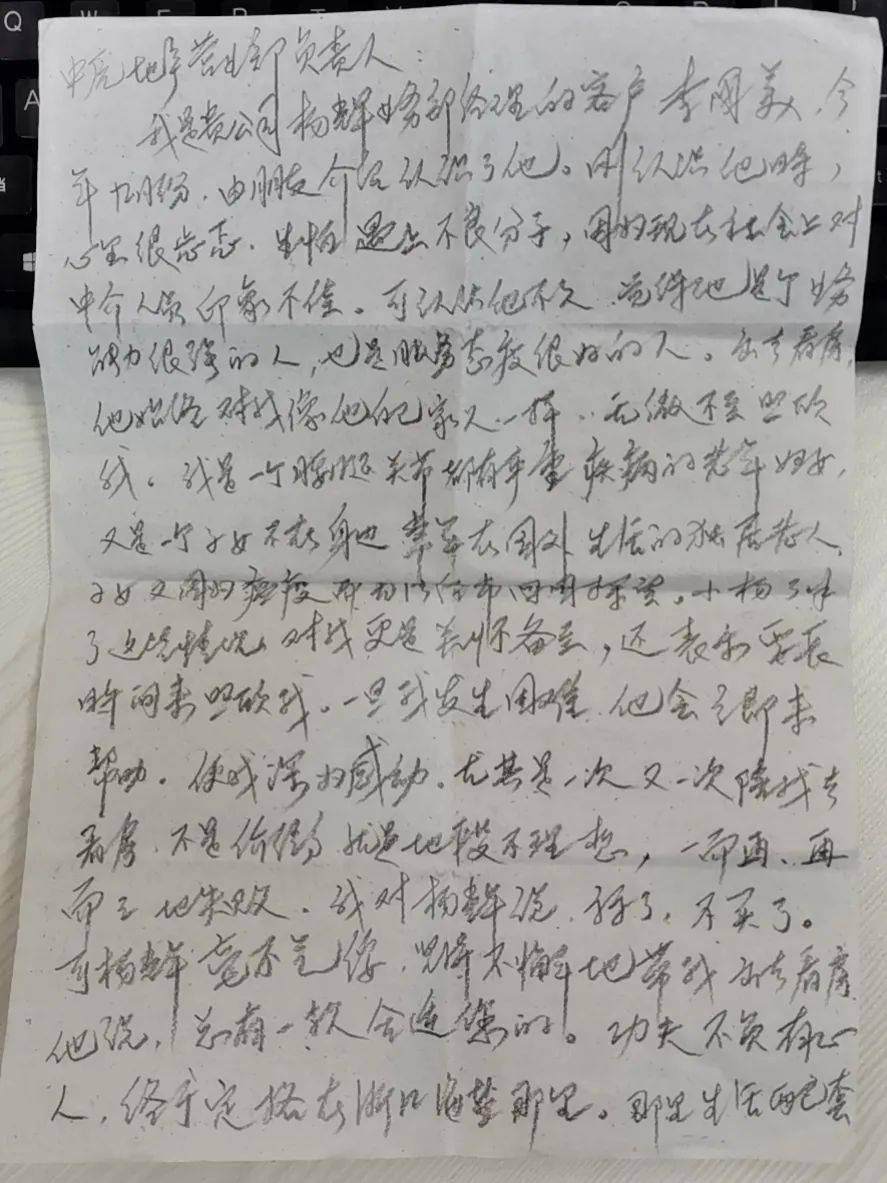 Q W E R
A
中亮地产营业部负责人：
我是贵公司杨辉业务部经理的客户李国美，今
年九月份，由朋友介绍认识了他。刚认识他时，
心里很忐忑，生怕遇上不良分子，因为现在社会上对
中介人员印象不佳。可认识他不久，觉得他是个业务
能力很强的人，也是服务态度很好的人。出去看房，
他始终对我像他自己家人一样，无微不至照顾
我。我是一个腰腿关节都有严重疾病的老年妇女，
又是一个子女不在身边常年在国外生活的独居老人，
子女又因为疫情而无法回国探望。小杨了解
了这些情况，对我更是关怀备至，还表示要长
时间来照顾我。一旦我发生困难，他会立即来
帮助。使我深为感动。尤其是一次又一次陪我去
看房，不是价钱就是地段不理想，一而再、再
而三地失败。我对杨辉说，算了，不买了。
可杨辉毫不气馁，坚持不懈地带我出去看房
他说，总有一款会适您的。功夫不负有心
人，终于定格在浙江海盐那里。那里生活配套